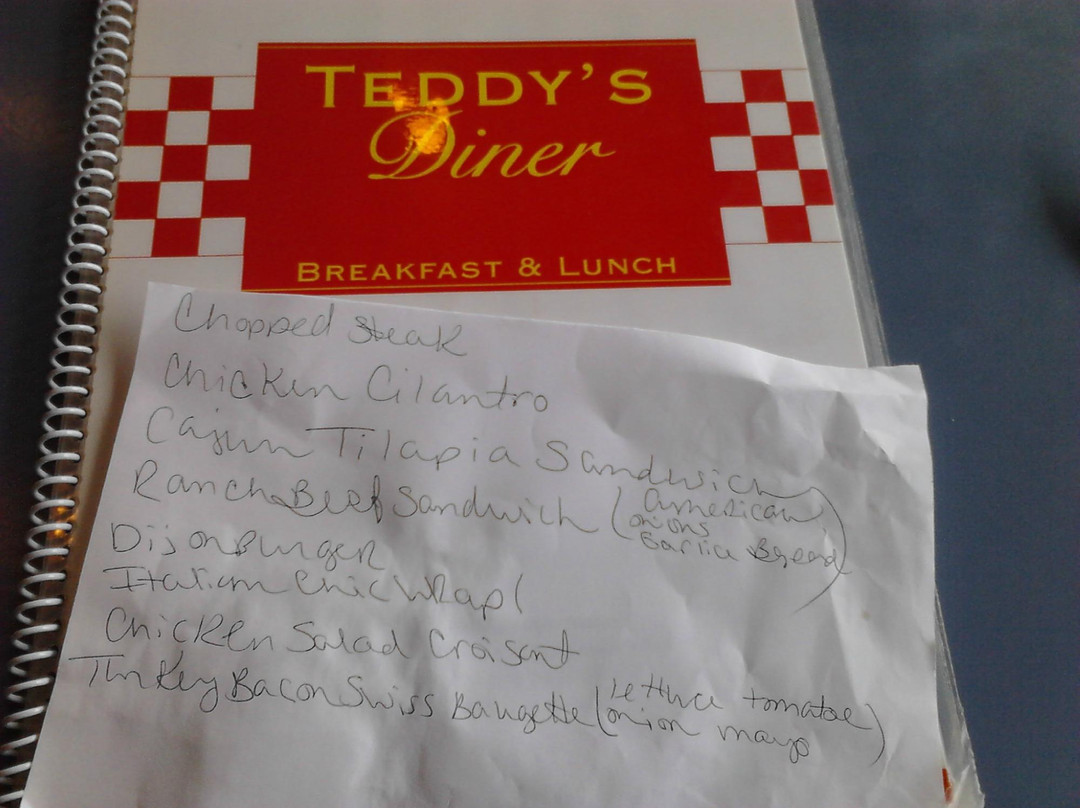 TEDDY'S
Diner
BREAKFAST & LUNCH
Chopped Steak
Chicken Cilantro
Cajun Tilapia Sandwich
Ranch Beef Sandwich (American
onions
Garlic Bread)
Dijon Burger
Italian Chic Wrap (
Chicken Salad Croisant
Turkey Bacon Swiss Baugette (lettuce tomatoe
onion mayo)